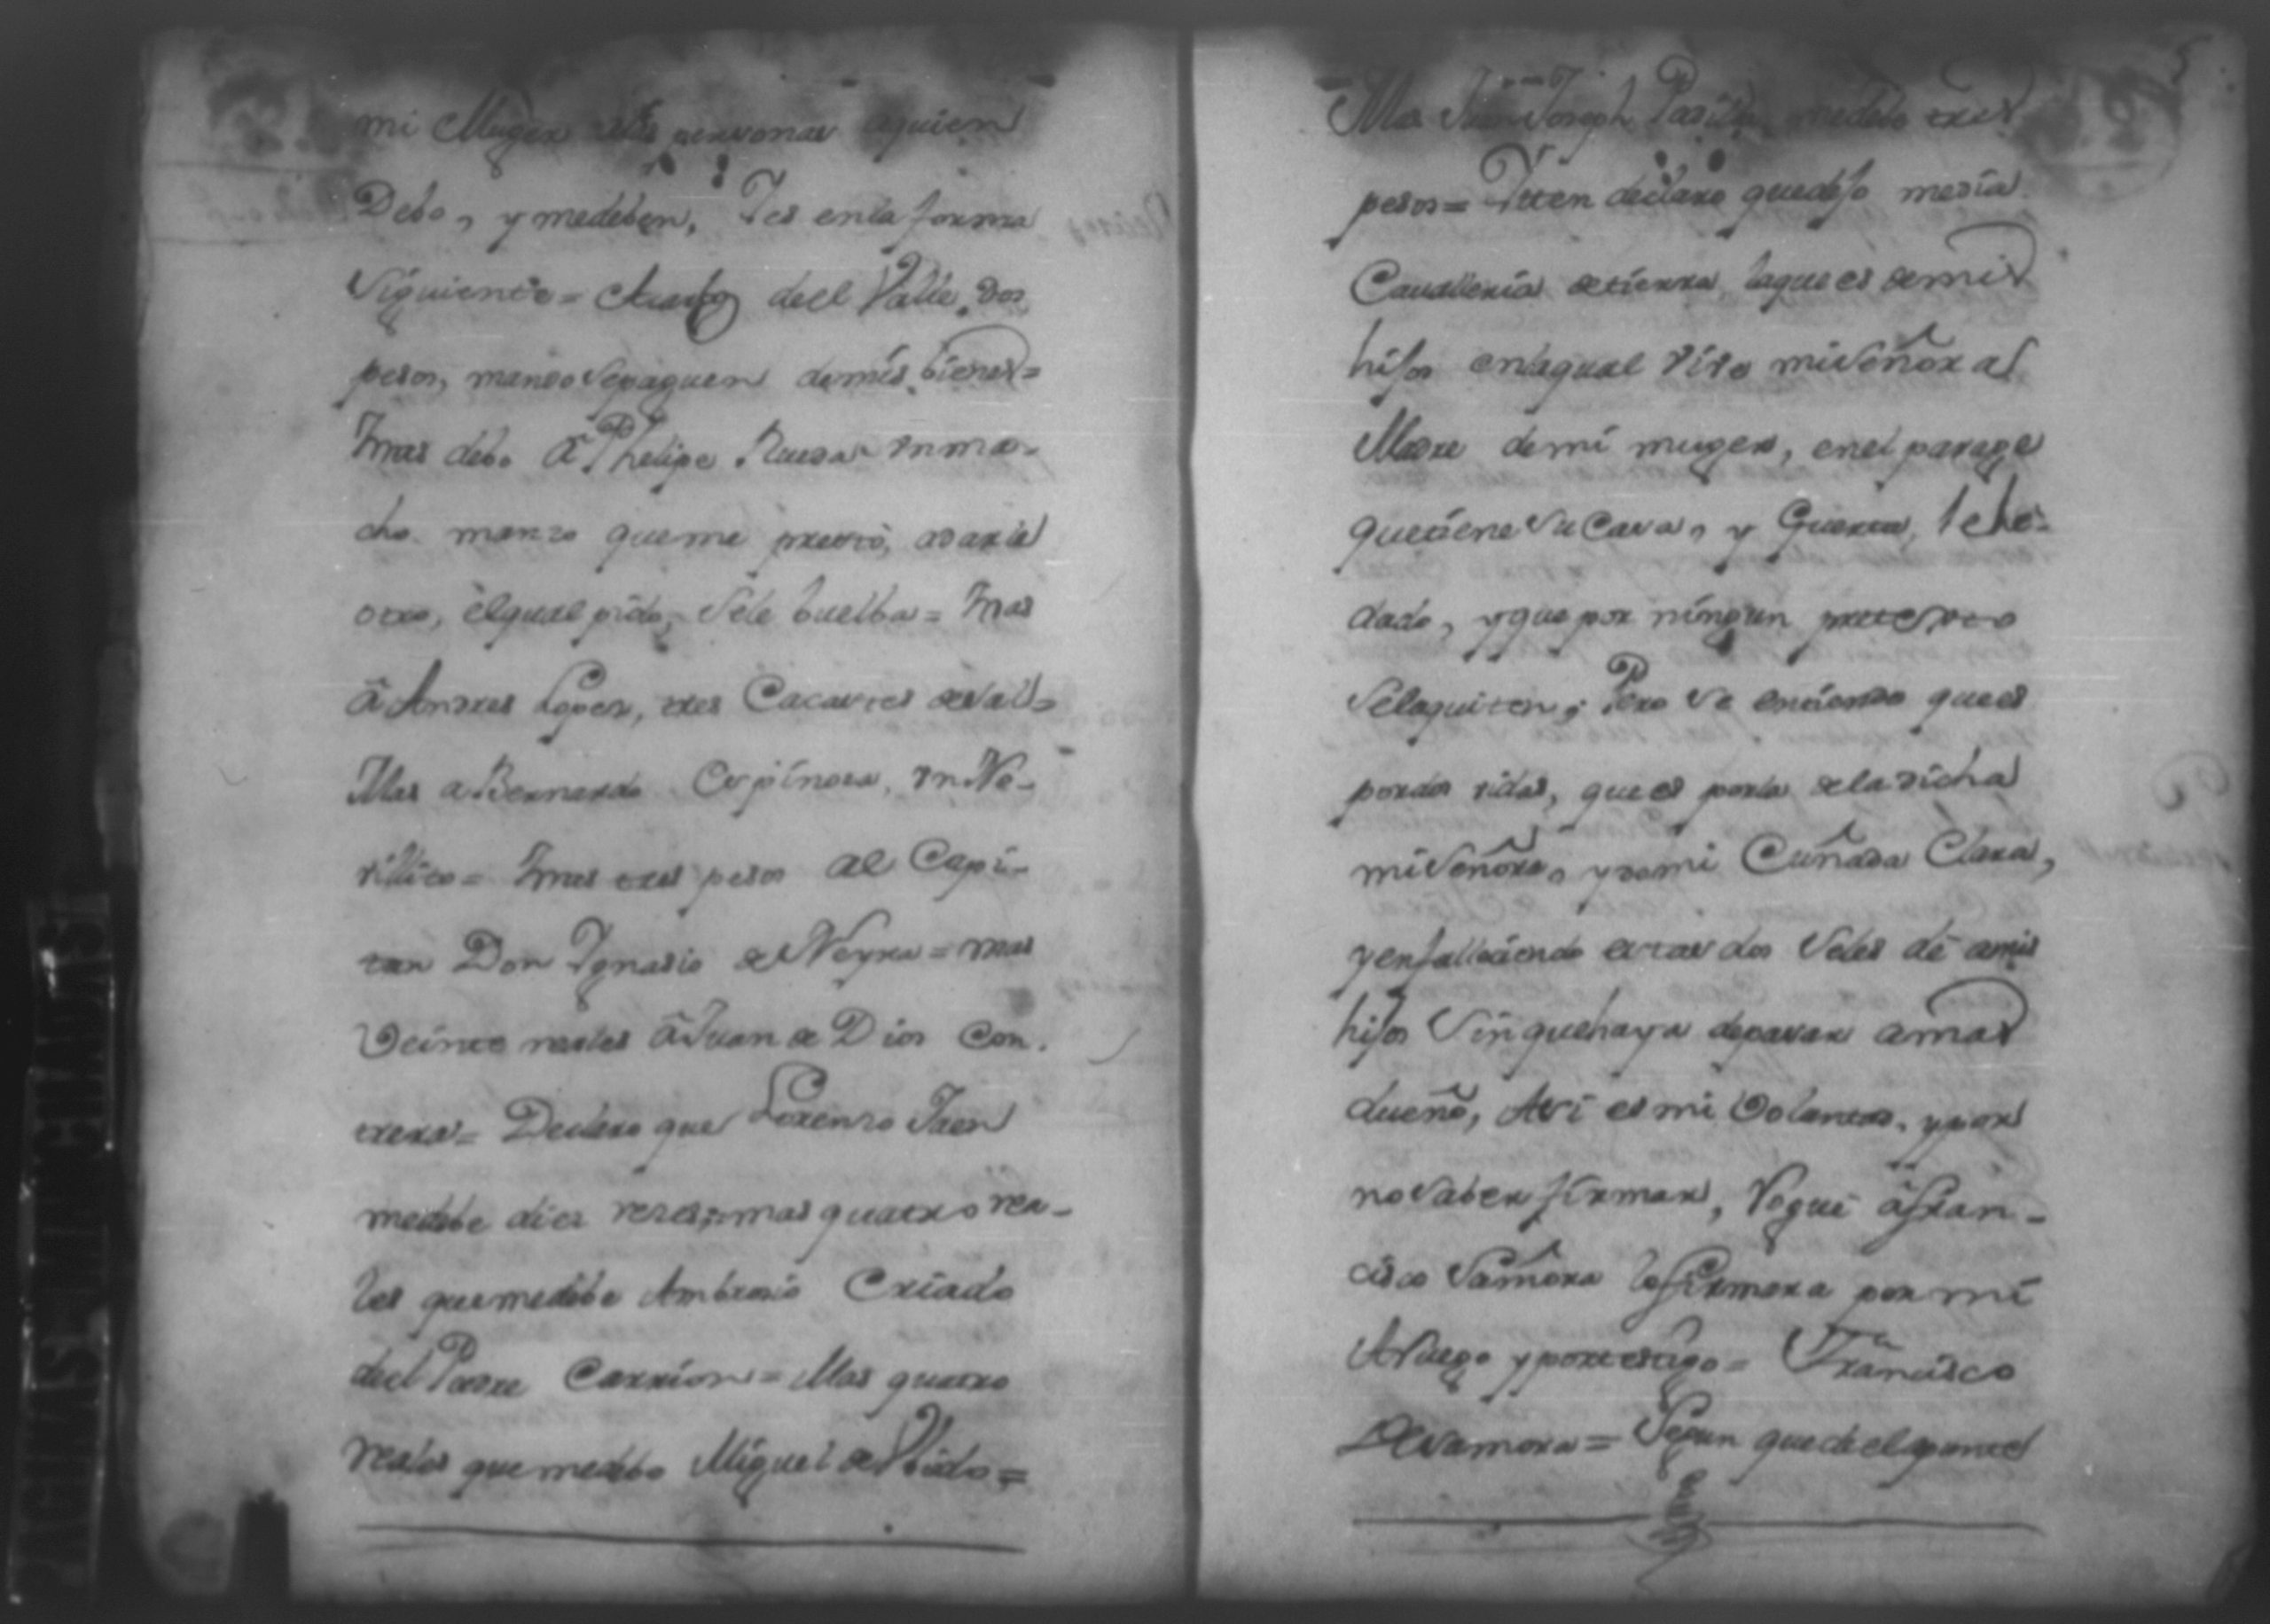 mi Muger las personas aquien
Debo, y medeben, Ies enla forma
Siguiente = dell Valle, dos
pesos, mando Sepaguen demis bienes =
Imas debo â Phelipe Rueda Vn ma-
cho manzo queme prestó, adarle
otro, elqual pido, Sele buelba = Imas
â Andres Lopez, tres Cacastes desal =
Mas a Bernardo Espinosa, Vn No-
villito = Imas tres pesos al Capi-
tan Don Ygnasio de Neyra = mas
Veinte reales â Juan de Dios Con-
trera = Declaro que Lorenzo Jaen
medebe diez reses, mas quatro rea-
les quemedebe Ambrosio Criado
deel Padre Carrion = Mas quatro
reales quemedebe Miguel de Vbido =
5
Mas Juan Joseph medebe tres
pesos = Itten declaro quedejo media
Cavalleria detierra, laque es demis
hijos enlaqual Vive miSeñora
Madre demi muger, enel parage
quetiene Su Casa, y Guerta, lehe
dado, yque por ningun pretexto
Selaquiten; Pero Se entiende quees
pordos vidas, quees porla dela dicha
miSeñora, ydemi Cuñada Clara,
yenfalleciendo estas dos Seles dé amis
hijos Sin quehaya depasar amas
dueño, Asi es mi Voluntad, ypor
noSaber firmar, Rogué âfran-
cisco Samora lofirmara por mi
ARuego yportestigo = Francisco
deSamora = Segun quede elapunte